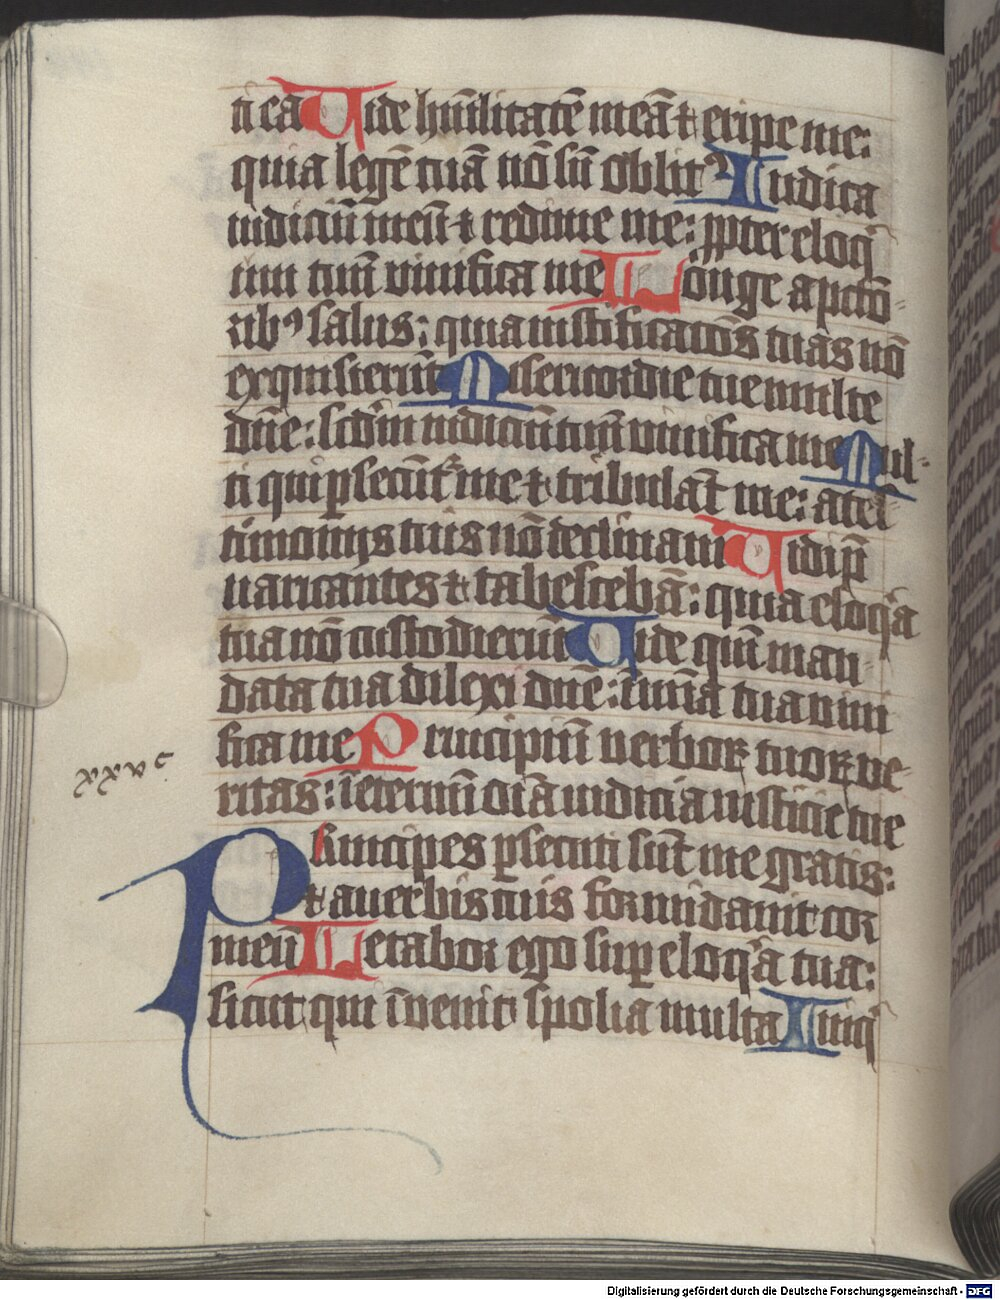 ti ca Vide hũilitatẽ meã ⁊ eripe me:
quia legẽ tuã nõ sũ oblitꝰ Iudica
iudiciũ meũ ⁊ redime me: ꝓpter eloq
uiũ tuũ viuifica me Longe a pctõ-
ribꝰ salus: quia iustificatiões tuas nõ
exquisierũt Misericordie tue multe
dñe: scdm iudiciũ tuũ viuifica me Mul-
ti qui ꝑsecũt᷑ me ⁊ tribulãt me: a tes
timonijs tuis nõ declinaui Vidi p̄
uaricantes ⁊ tabescebã: quia eloq̃a
tua nõ custodierũt Vide qm̃ man-
data tua dilexi dñe: ĩ mĩa tua viui
fica me Principiũ verboꝝ tuoꝝ ve-
ritas: ĩ eternũ oĩa iudicia iusticie tue
xxv
Principes ꝑsecuti sũt me gratis:
⁊ a verbis tuis formidauit cor
meũ Letabor ego suꝑ eloq̃a tua:
sicut qui ĩvenit spolia multa Iniq
Digitalisierung gefördert durch die Deutsche Forschungsgemeinschaft - DFG